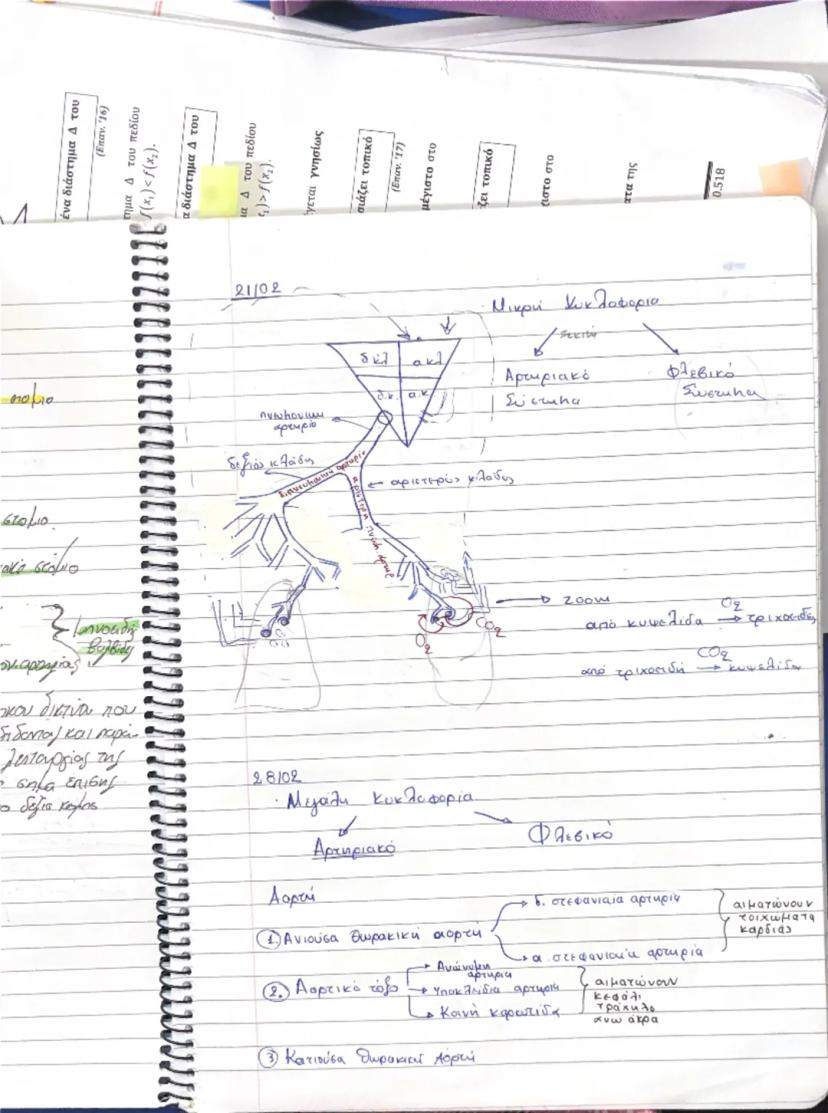 ένα διάστημα Δ του
(Επαν. '16)
τημα Δ του πεδίου
f(x₁) < f(x₂).
α διάστημα Δ του
α Δ του πεδίου
) > f(x₂).
γεται γνησίως
σιάζει τοπικό
(Επαν. '17)
μέγιστο στο
ζει τοπικό
ιστο στο
ατα της
0.518
στόμιο
στόμιο
στόμιο
βαλβίδα
δικτύου που
λειτουργίας της
σημα επίσης
ο δεξιά
21/02
Μικρή Κυκλοφορία
Αρτηριακό
Σύστημα
Φλεβικό
Σύστημα
δ κλ
α κλ
δ.κ.
α.κ.
πνευμονική
αρτηρία
δεξιός κλάδος
δ. πνευμονική αρτηρία
αριστερός κλάδος
αριστερή πνευμ. αρτηρ.
zoom
O₂
CO₂
από κυψελίδα O₂ → τριχοειδές
από τριχοειδή CO₂ → κυψελίδα
28/02
Μεγάλη Κυκλοφορία
Αρτηριακό
Φλεβικό
Αορτή
① Ανιούσα θωρακική αορτή
δ. στεφανιαία αρτηρία
α. στεφανιαία αρτηρία
αιματώνουν
τοιχώματα
καρδιάς
②. Αορτικό τόξο
Ανώνυμη
αρτηρία
Υποκλείδια αρτηρία
Κοινή καρωτίδα
αιματώνουν
κεφάλι
τράχηλο
άνω άκρα
③ Κατιούσα θωρακική Αορτή